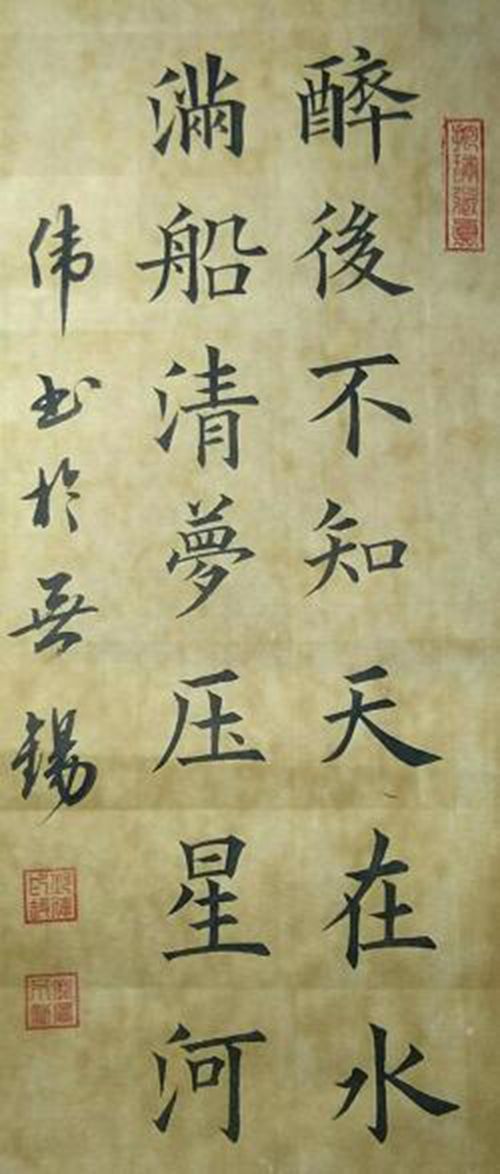 醉後不知天在水
滿船清夢压星河
伟书於無錫